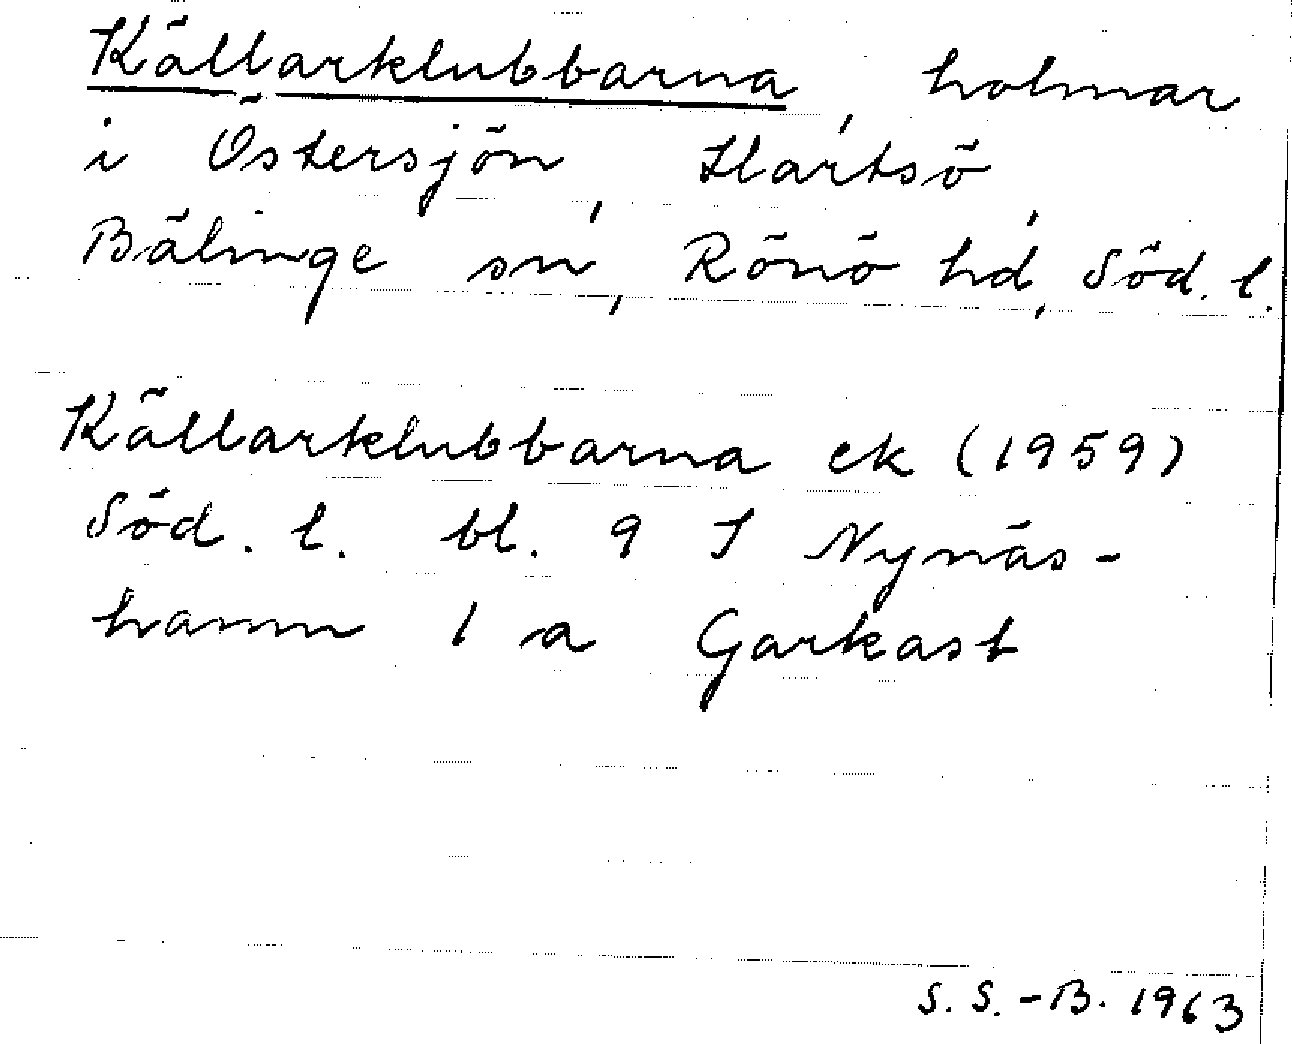 Källarklubbarna, holmar
i Östersjön, Hartsö,
Bälinge sn, Rönö hd, Söd. l.
Källarklubbarna ek (1959)
Söd. l. bl. 9 I Nynäs-
hamn 1 a Garkast
S. S.-B. 1963